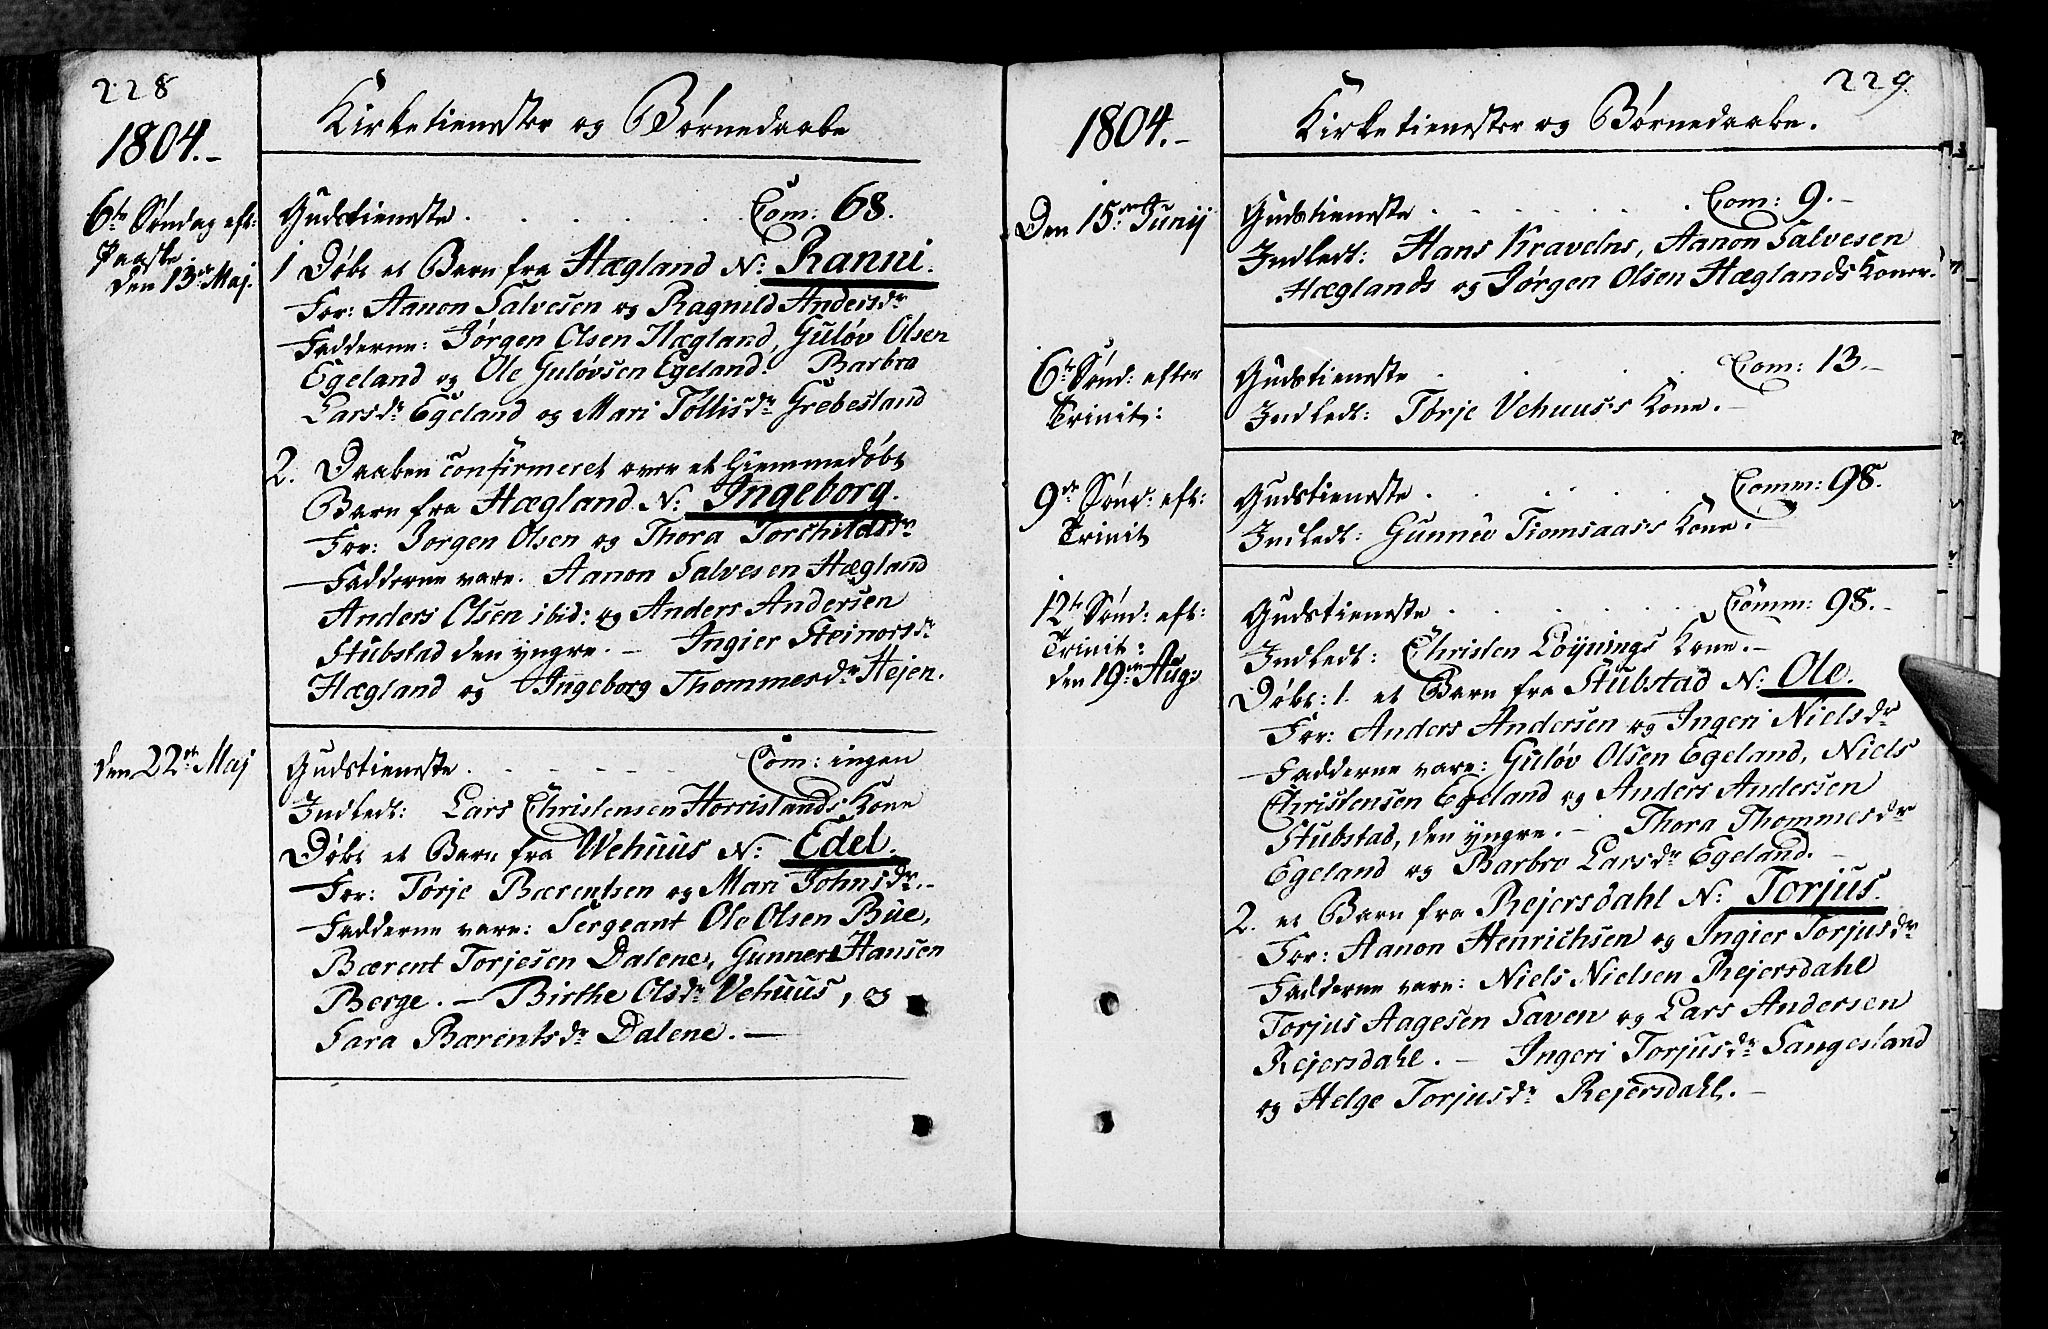 228
1804.-
Kirketienester og Børnedaabe
6te Søndag eft:
Paaske
den 13de Maj.
Gudstieneste . . . . . . Com: 68.
1 Døbt et Barn fra Hægland N: Ranni.
For: Aanon Salvesen og Ragnild Andersdr
Fadderne: Jørgen Olsen Hægland, Guløv Olsen
Egeland og Ole Guløvsen Egeland. Barbro
Larsdr Egeland og Mari Tollisdr Grebesland
2. Daaben confirmeret over et hiemmedøbt
Barn fra Hægland. N: Ingeborg.
For: Jorgen Olsen og Thora Torchildsdr
Fadderne vare: Aanon Salvesen Hægland
Anders Olsen ibid: og Anders Andersen
Stubstad den yngre. - Ingier Steinorsdr
Hægland og Ingeborg Thommesdr Hejen.
den 22de Maj
Gudstieneste . . . . . Com: ingen
Indledt: Lars Christensen Horrislands Kone
Døbt et Barn fra Wehuus N: Edel.
For: Torje Bærentsen og Mari Johnsdr.-
Fadderne vare: Sergeant Ole Olsen Bue,
Bærent Torjesen Dalene, Gunner Hansen
Berge. - Birthe Olsdr Vehuus, og
Sara Bærentsdr Dalene. -
229.
1804.-
Kirketienester og Børnedaabe.
Den 15de Junij
Gudstieneste . . . . . . Com: 9.-
Indledt: Hans Kravelns, Aanon Salvesen
Hæglands og Jørgen Olsen Hæglands Koner.
6te Sønd: efter
Trinit:
Gudstieneste . . . . Com: 13.-
Indledt: Torje Vehuus's Kone.-
9de Sønd: eft:
Trinit
Gudstieneste . . . . . Comm: 98.
Indledt: Gunnuv Tromsaas's Kone.
12te Sønd: eft:
Trinit:
den 19de Aug:
Gudstieneste . . . . . . Comm: 98.-
Indledt: Christen Löynings Kone.-
Døbt: 1. et Barn fra Stubstad N: Ole.
For: Anders Andersen og Ingeri Nielsdr
Fadderne vare: Guløv Olsen Egeland, Niels
Christensen Egeland og Anders Andersen
Stubstad, den yngre. - Thora Thommesdr
Egeland og Barbro Larsdr Egeland.-
2. et Barn fra Rejersdahl N: Torjus.
For: Aanon Henrichsen og Ingier Torjusdr
Fadderne vare: Niels Nielsen Rejersdahl
Torjus Aagesen Saven og Lars Andersen
Rejersdahl. - Ingeri Torjusdr Sangesland
og Helge Torjusdr Rejersdahl.-